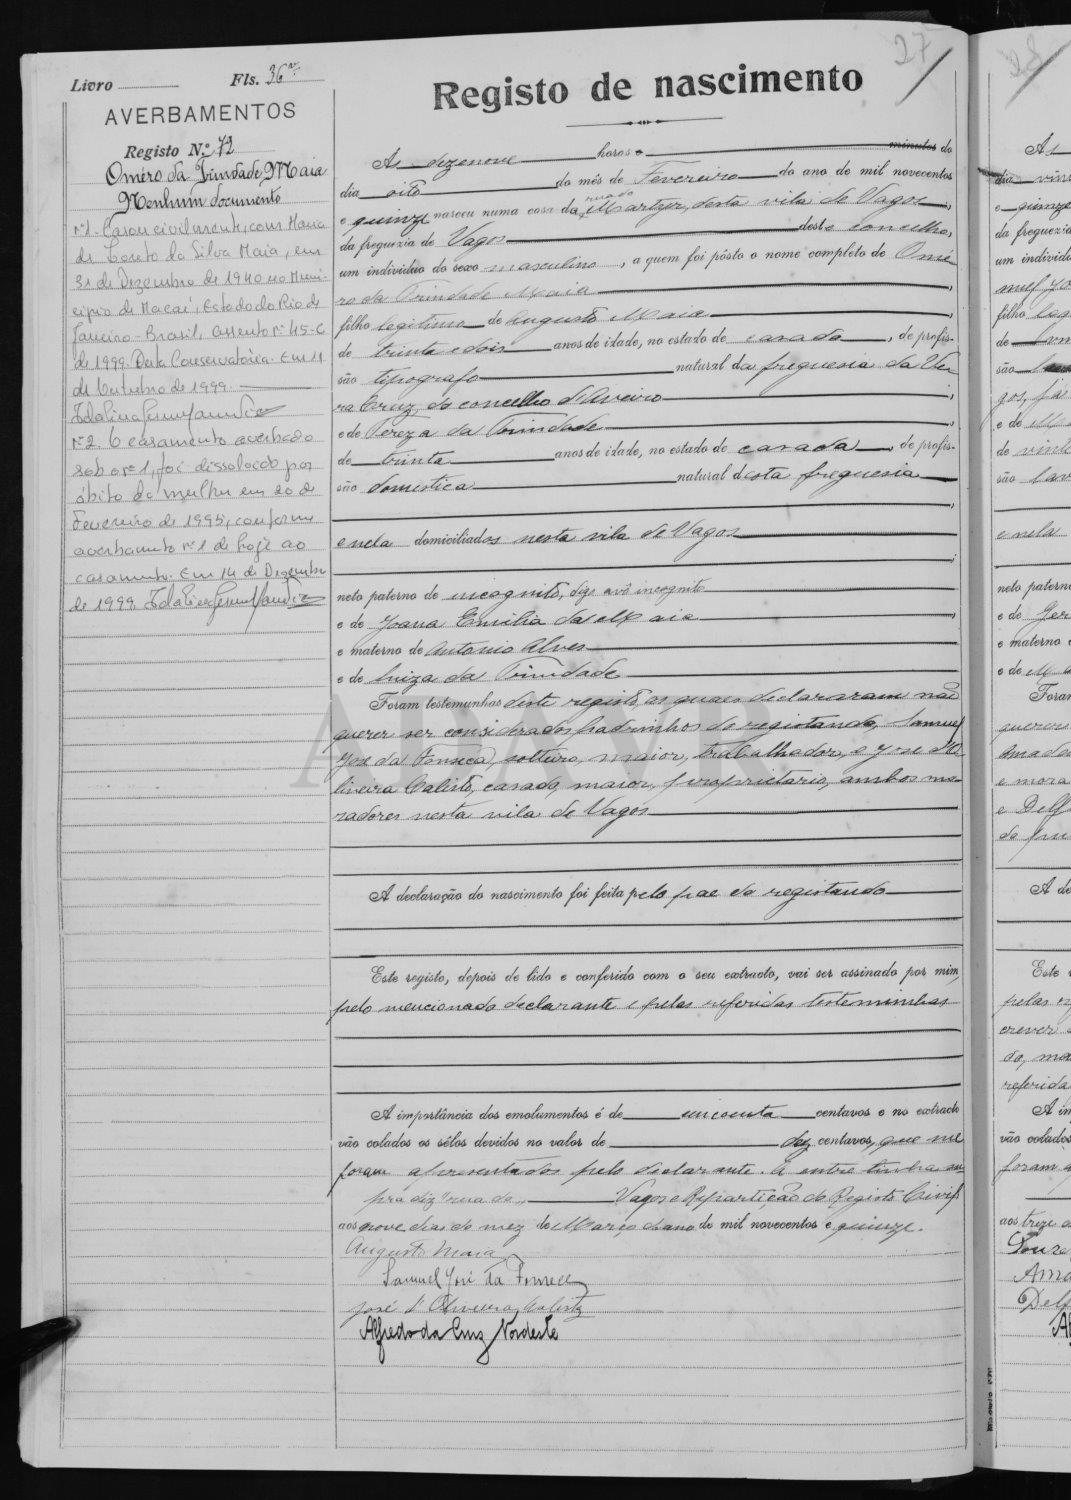 27
Livro Fls. 36
AVERBAMENTOS
Registo N.º 72
Omiro da Trindade Maia
Nenhum documento
nº1- Casou civilmente, com Maria
de Loreto da Silva Maia, em
31 de Dezembro de 1940 no Muni-
cipio de Macaé, Estado do Rio de
Janeiro - Brasil, assento nº 45-C
de 1999. Desta Conservatória. Em 11
de Outubro de 1999.
Nº2. O casamento averbado
sob o nº 1, foi dissolvido por
óbito da mulher em 20 de
Fevereiro de 1995, conforme
averbamento nº 1 de hoje ao
casamento. Em 14 de Dezembro
de 1999.
Registo de nascimento
As dezenove horas e minutos do
dia oito do mês de Fevereiro do ano de mil novecentos
rua do
e quinze nasceu numa casa da Martyr, desta vila de Vagos,
da freguezia de Vagos deste concelho,
um individuo do sexo masculino, a quem foi pôsto o nome completo de Omé-
ro da Trindade Maia,
filho legitimo de Augusto Maia,
de trinta e dois anos de idade, no estado de casado, de profis-
são tipografo natural da freguesia da Ve-
ra Cruz, do concelho d'Aveiro,
e de Tereza da Trindade,
de trinta anos de idade, no estado de casada, de profis-
são domestica natural desta freguesia
e nela domiciliados nesta vila de Vagos
neto paterno de incognito, digo avô incognito
e de Joana Emilia da Maia,
e materno de Antonio Alves
e de Luiza da Trindade
Foram testemunhas deste registo, as quaes declararam não
querer ser considerados padrinhos do registando, Samuel
José da Fonseca, solteiro, maior, trabalhador, e José d'O-
liveira Calisto, casado, maior, proprietario, ambos mo-
radores nesta vila de Vagos
A declaração do nascimento foi feita pelo pae do registando
Este registo, depois de lido e conferido com o seu extracto, vai ser assinado por mim,
pelo mencionado declarante e pelas referidas testemunhas
A importância dos emolumentos é de cincoenta centavos e no extracto
vão colados os sêlos devidos no valor de dez centavos, que me
foram apresentados pelo declarante. A entre linha su-
pra diz "rua do" Vagos e Repartição do Registo Civil
aos nove dias do mez de Março do ano de mil novecentos e quinze.
Augusto Maia
Samuel José da Fonseca
José d'Oliveira Calisto
Alfredo da Cruz Nordeste
As
dia vint
e quinze
da freguezi
um individu
filho leg
de
são
gos,
e de
de vint
são lav
e nela
neto patern
e de Ger
e materno
e de Ma
Foram
querer
e mora
e Delf
A de
Este
pelas
crever
do, ma
referida
A im
vão colados
foram
aos treze d
Ama
Delf
Al